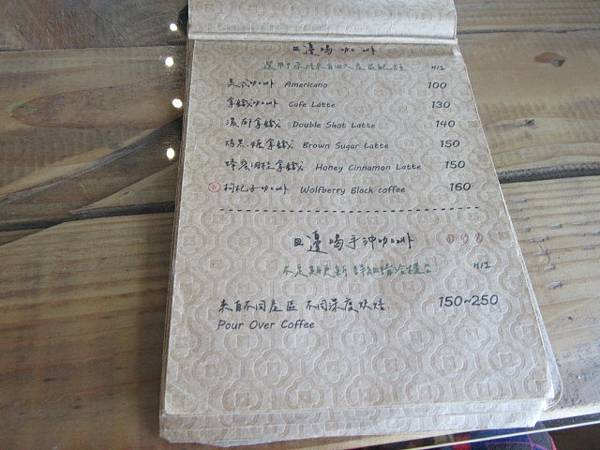 邊喝咖啡
H12
美式咖啡 Americano 100
拿鐵咖啡 Cafe Latte 130
濃郁拿鐵 Double Shot Latte 140
焙黑糖拿鐵 Brown Sugar Latte 150
蜂蜜肉桂拿鐵 Honey Cinnamon Latte 150
枸杞子咖啡 Wolfberry Black coffee 160
邊喝手沖咖啡
不定期更新 詳細請洽櫃台 H12
來自不同產區 不同深度烘焙 150~250
Pour Over Coffee